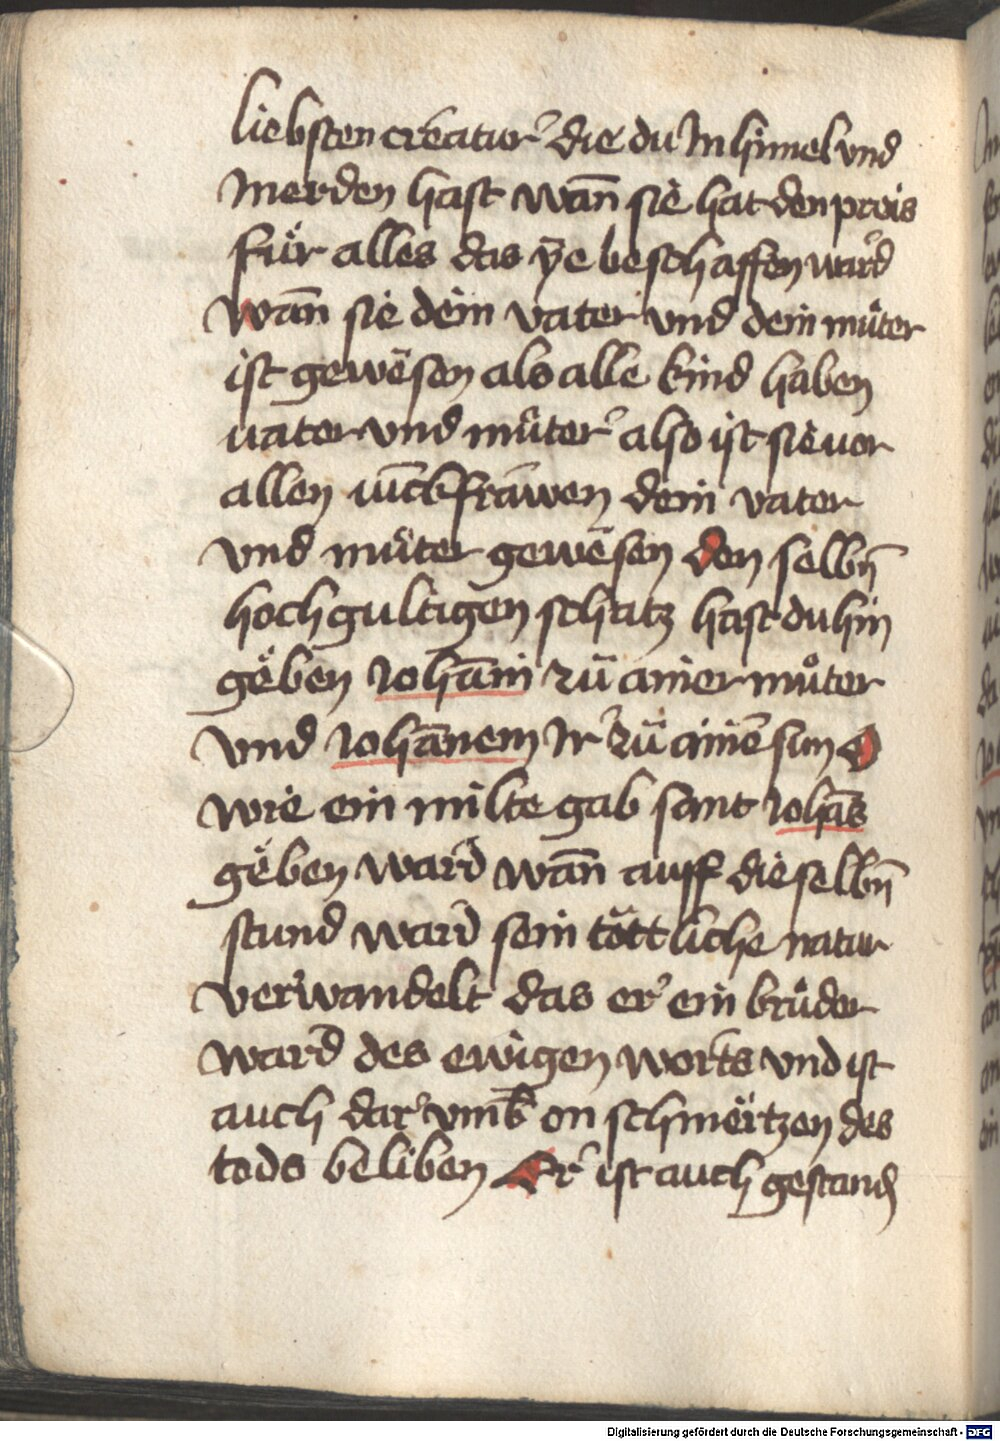 liebsten creatur die du In himel vnd
In erden hast wan̄ sie hat den preis
für alles das ÿe beschaffen ward
wan̄ sie dein vater vnd dein mu̎ter
ist gewësen als alle kind haben
uater vnd mu̎ter also ist sie uor
allen iūckfrāwen dein vater
vnd mu̎ter gewësen den selbn̄
hochgultigen schatz hast du hin
gëben Iohan̄i zu̎ ainer mu̎ter
vnd Iohan̄em Ir zu̎ ainē sun O
wie ein milte gab sant Iohas̄
gëben ward wan̄ auff die selbn̄
stund ward sein töttliche natur
verwandelt das er ein bru̎der
ward des ewigen worts vnd ist
auch dar vmb on schmërtzen des
tods beliben Er ist auch gestandn
Digitalisierung gefördert durch die Deutsche Forschungsgemeinschaft - DFG